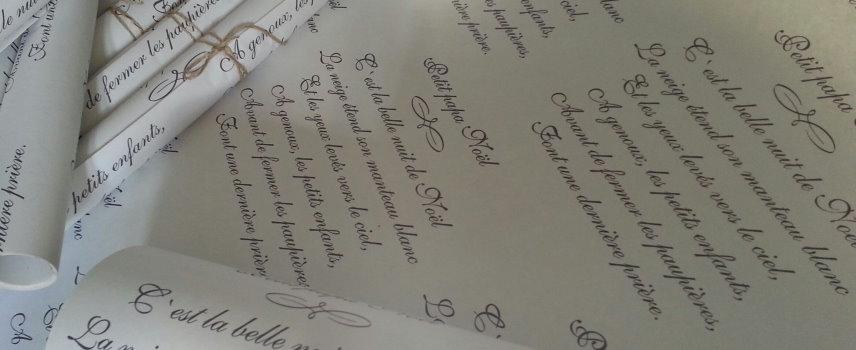 de fermer les paupières
A genoux, les
petits enfants,
prière.
blanc
ciel,
enfants,
paupières,
prière.
Petit papa Noël
C'est la belle nuit de Noël
La neige étend son manteau blanc
Et les yeux levés vers le ciel,
A genoux, les petits enfants,
Avant de fermer les paupières,
Font une dernière prière
Petit papa
C'est la belle nuit de Noël
La neige étend son manteau blanc
Et les yeux levés vers le ciel,
A genoux, les petits enfants,
Avant de fermer les paupières,
Font une dernière prière.
C'est la belle
La